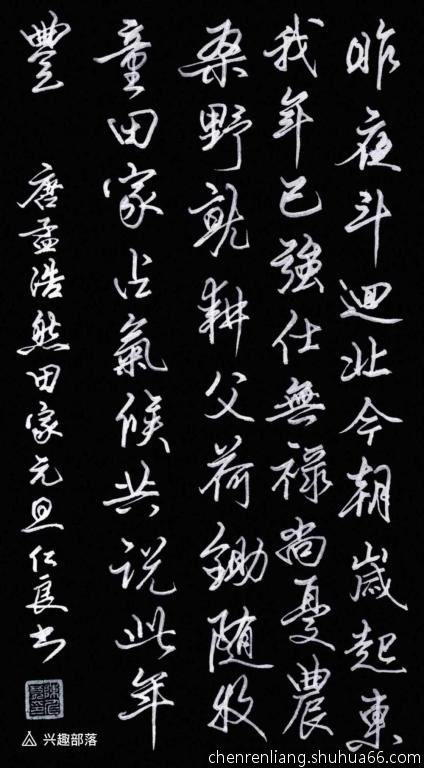 昨夜斗迴北今朝歲起東
我年已強仕無禄尚憂農
桑野就耕父荷鋤随牧
童田家占氣候共説此年
豐
唐孟浩然田家元旦仁良书
兴趣部落
chenrenliang.shuhua66.com